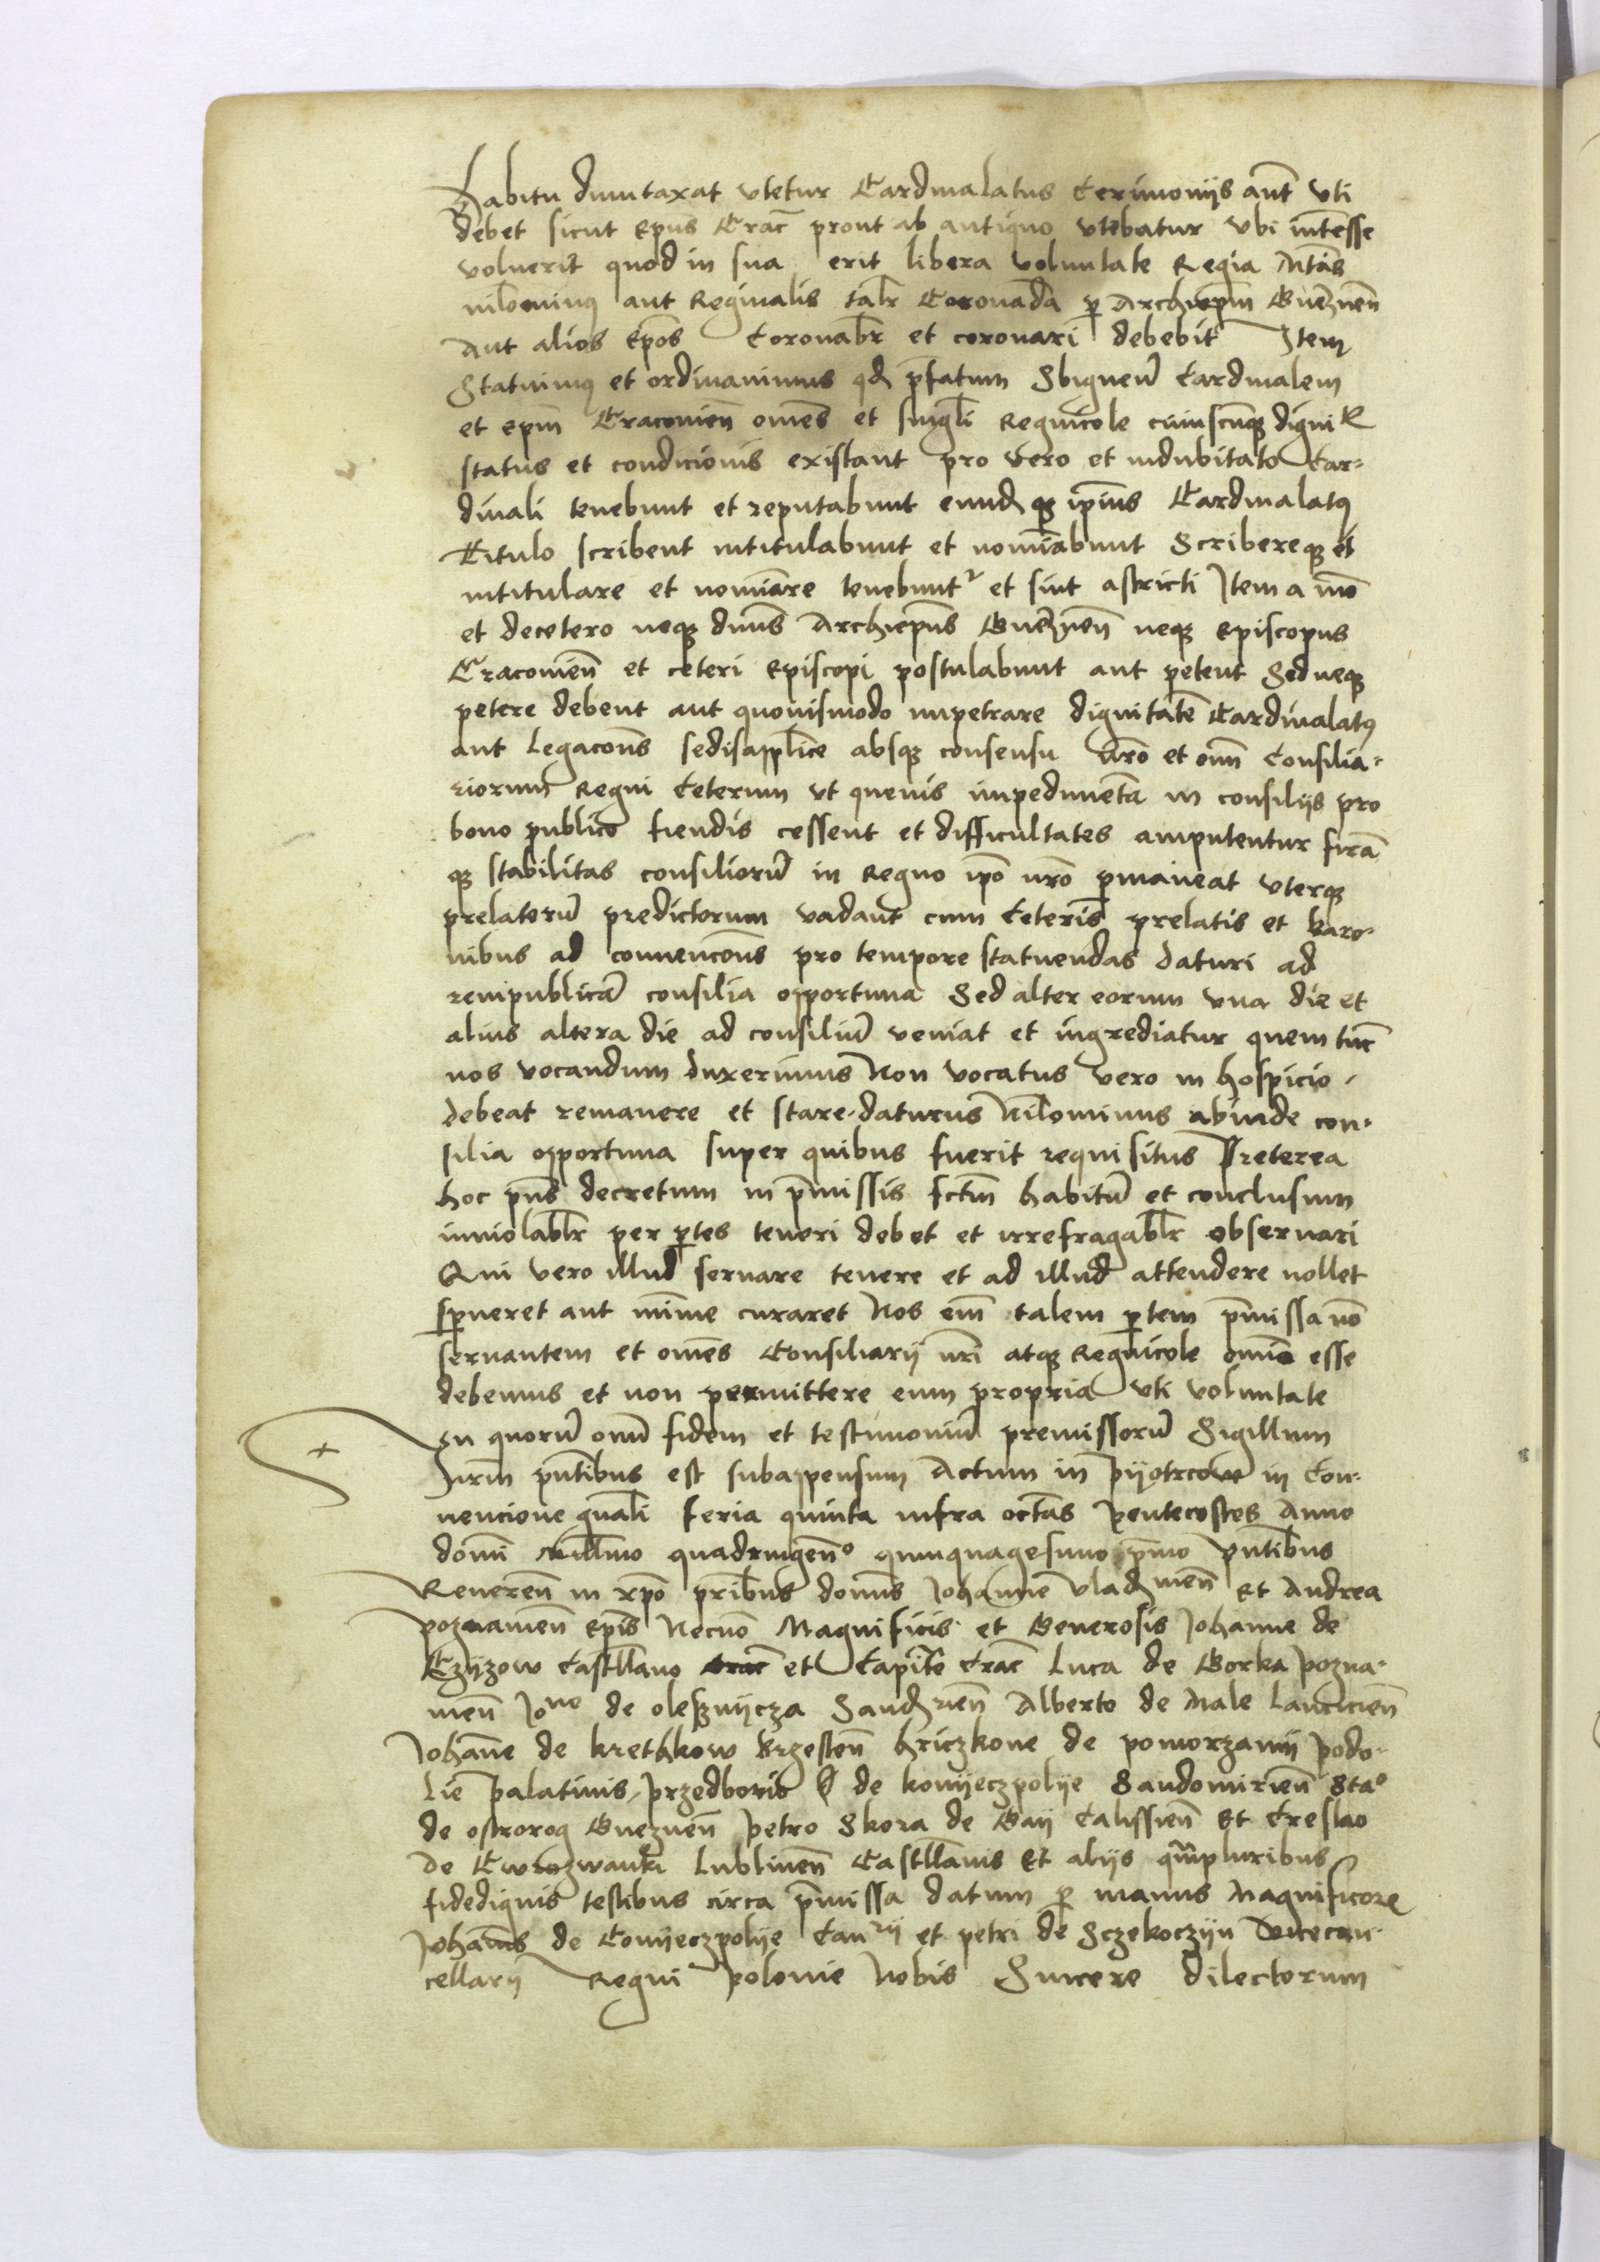 habitu dumtaxat vtetur Cardinalatus Cerimonijs aut̄ vti
debet sicut Ep̄us Crac̄ prout ab antiquo vtebatur vbi int̄esse
voluerit quod in sua erit libera voluntate Regia Mt̄as
nil̄ominus aut Reginalis tal̄r Coronāda p Archiep̄m Gnēznen̄
Aut alios Ep̄os Coronab̄r et coronari debebit Item
Statuimus et ordinauimus qd p̄fatum Sbigneū Cardinalem
et ep̄m Cracouien̄ om̄es et singl̄i Regnicole cuiuscunq digni
status et condicionis existant pro vero et indubitato Car-
dinali tenebunt et reputabunt eundq ip̄ius Cardinalatus
Titulo scribent intitulabunt et nomīabunt Scribereq et
intitulare et nomīare tenebunt et sint astricti Item a mō
et decetero neq dn̄us Archiep̄us Gnēznen̄ neq Episcopus
Cracouien̄ et ceteri Episcopi postulabunt aut petent Sed neq
petere debent aut quouismodo impetrare dignitatē Cardinalatus
aut Legacōns sedis ap̄lice absq consensu nr̄o et om̄ Consilia-
riorum Regni Ceterum vt queuis impedimēta in consilijs pro
bono publico fiendis cessent et difficultates amputentur firā
q stabilitas consiliorū in Regno ip̄o nr̄o pmaneat vterq
prelatorū predictorum vadant cum Ceteris prelatis et baro-
nibus ad conuencōns pro tempore statuendas daturi ad
rempublicā consilia opportuna Sed alter eorum vna die et
alius altera die ad consiliū veniat et ingrediatur quem tūc
nos vocandum duxerimus Non vocatus vero in hospicio
debeat remanere et stare daturus Nil̄ominus abinde con-
silia opportuna super quibus fuerit requisitus Preterea
hoc p̄ns decretum in p̄missis fctm̄ habitū et conclusum
inuiolabl̄r per ptes teneri debet et irrefragabl̄r obseruari
Qui vero illud seruare tenere et ad illud attendere nollet
sperneret aut mīme curaret Nos em̄ talem ptem p̄missa nō
seruantem et om̄es Consiliarij nr̄i atq Regnicole om̄es esse
debemus et non permittere eum propria vti voluntate
In quorū om̄ū fidem et testimoniū premissorū Sigillum
nr̄m pn̄tibus est subappensum Actum in pijotrcow in Con-
uencione gnāli feria quinta infra octās pentecostes Anno
domi millmo quadringeno quinquagesimo p̄mo pn̄tibus
Reueren̄ in xpo pribus domīs Johanne vladmen̄ Et Andrea
poznanien̄ Ep̄is Necnō Magnificis et Generosis Johanne de
Czijzow Castell̄ano et Capit̄o Crac̄ Luca de Gorka pozna-
nien̄ Jone de oleschnijcza Sandrien̄ Alberto de Male Lancicien̄
Johāne de krethkow brzesten̄ hriczkone de pomorzanij podo-
lie palatinis przedborio de konijeczpolije Sandomirien̄ Stao
de ostrorog Gneznen̄ petro Skora de Gaij Calissien̄ Et Creslao
de Cwrozwanki Lublinen̄ Castell̄anis Et alijs qm̄pluribus
fidedignis testibus circa p̄missa datum p manus Magnificor
Johānis de Conijeczpolije Canrij et petri de Sczekoczijn vicecan-
cellarij Regni polonie Nobis Sincere dilectorum